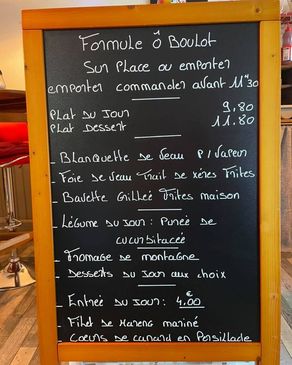 Formule ô Boulot
Sur Place ou emporter
emporter commander avant 11H30
Plat du Jour 9,80
Plat Dessert 11.80
- Blanquette de Veau P/Vapeur
- Foie de Veau Trait de xéres Frites
- Bavette Grillée Frites maison
- Légume du Jour : Purée de
cucurbitacée
- Fromage de montagne
- Desserts du Jour aux choix
- Entrée du Jour: 4,00 €
- Filet de Hareng mariné
- Cœurs de canard en Persillade